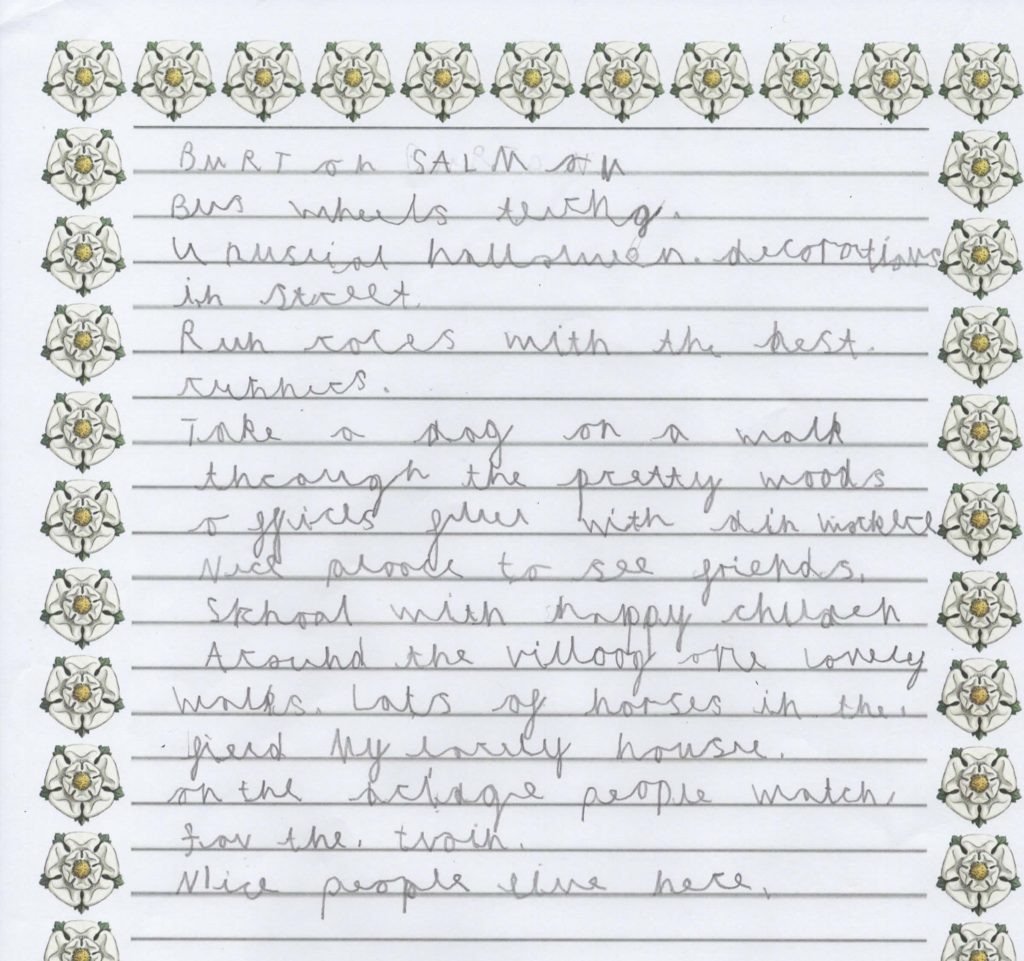 BURT on SALMON
Bus wheels
Unusual halloween. decorations
in street.
Run races with the best.
runners.
Take a dog on a walk
through the pretty woods
offices with
Nice place to see friends.
Skhool with happy children
Around the villaag are lovely
walks. Lots of horses in the.
field My lovely house.
on the people watch
for the. train.
Nice people live here.